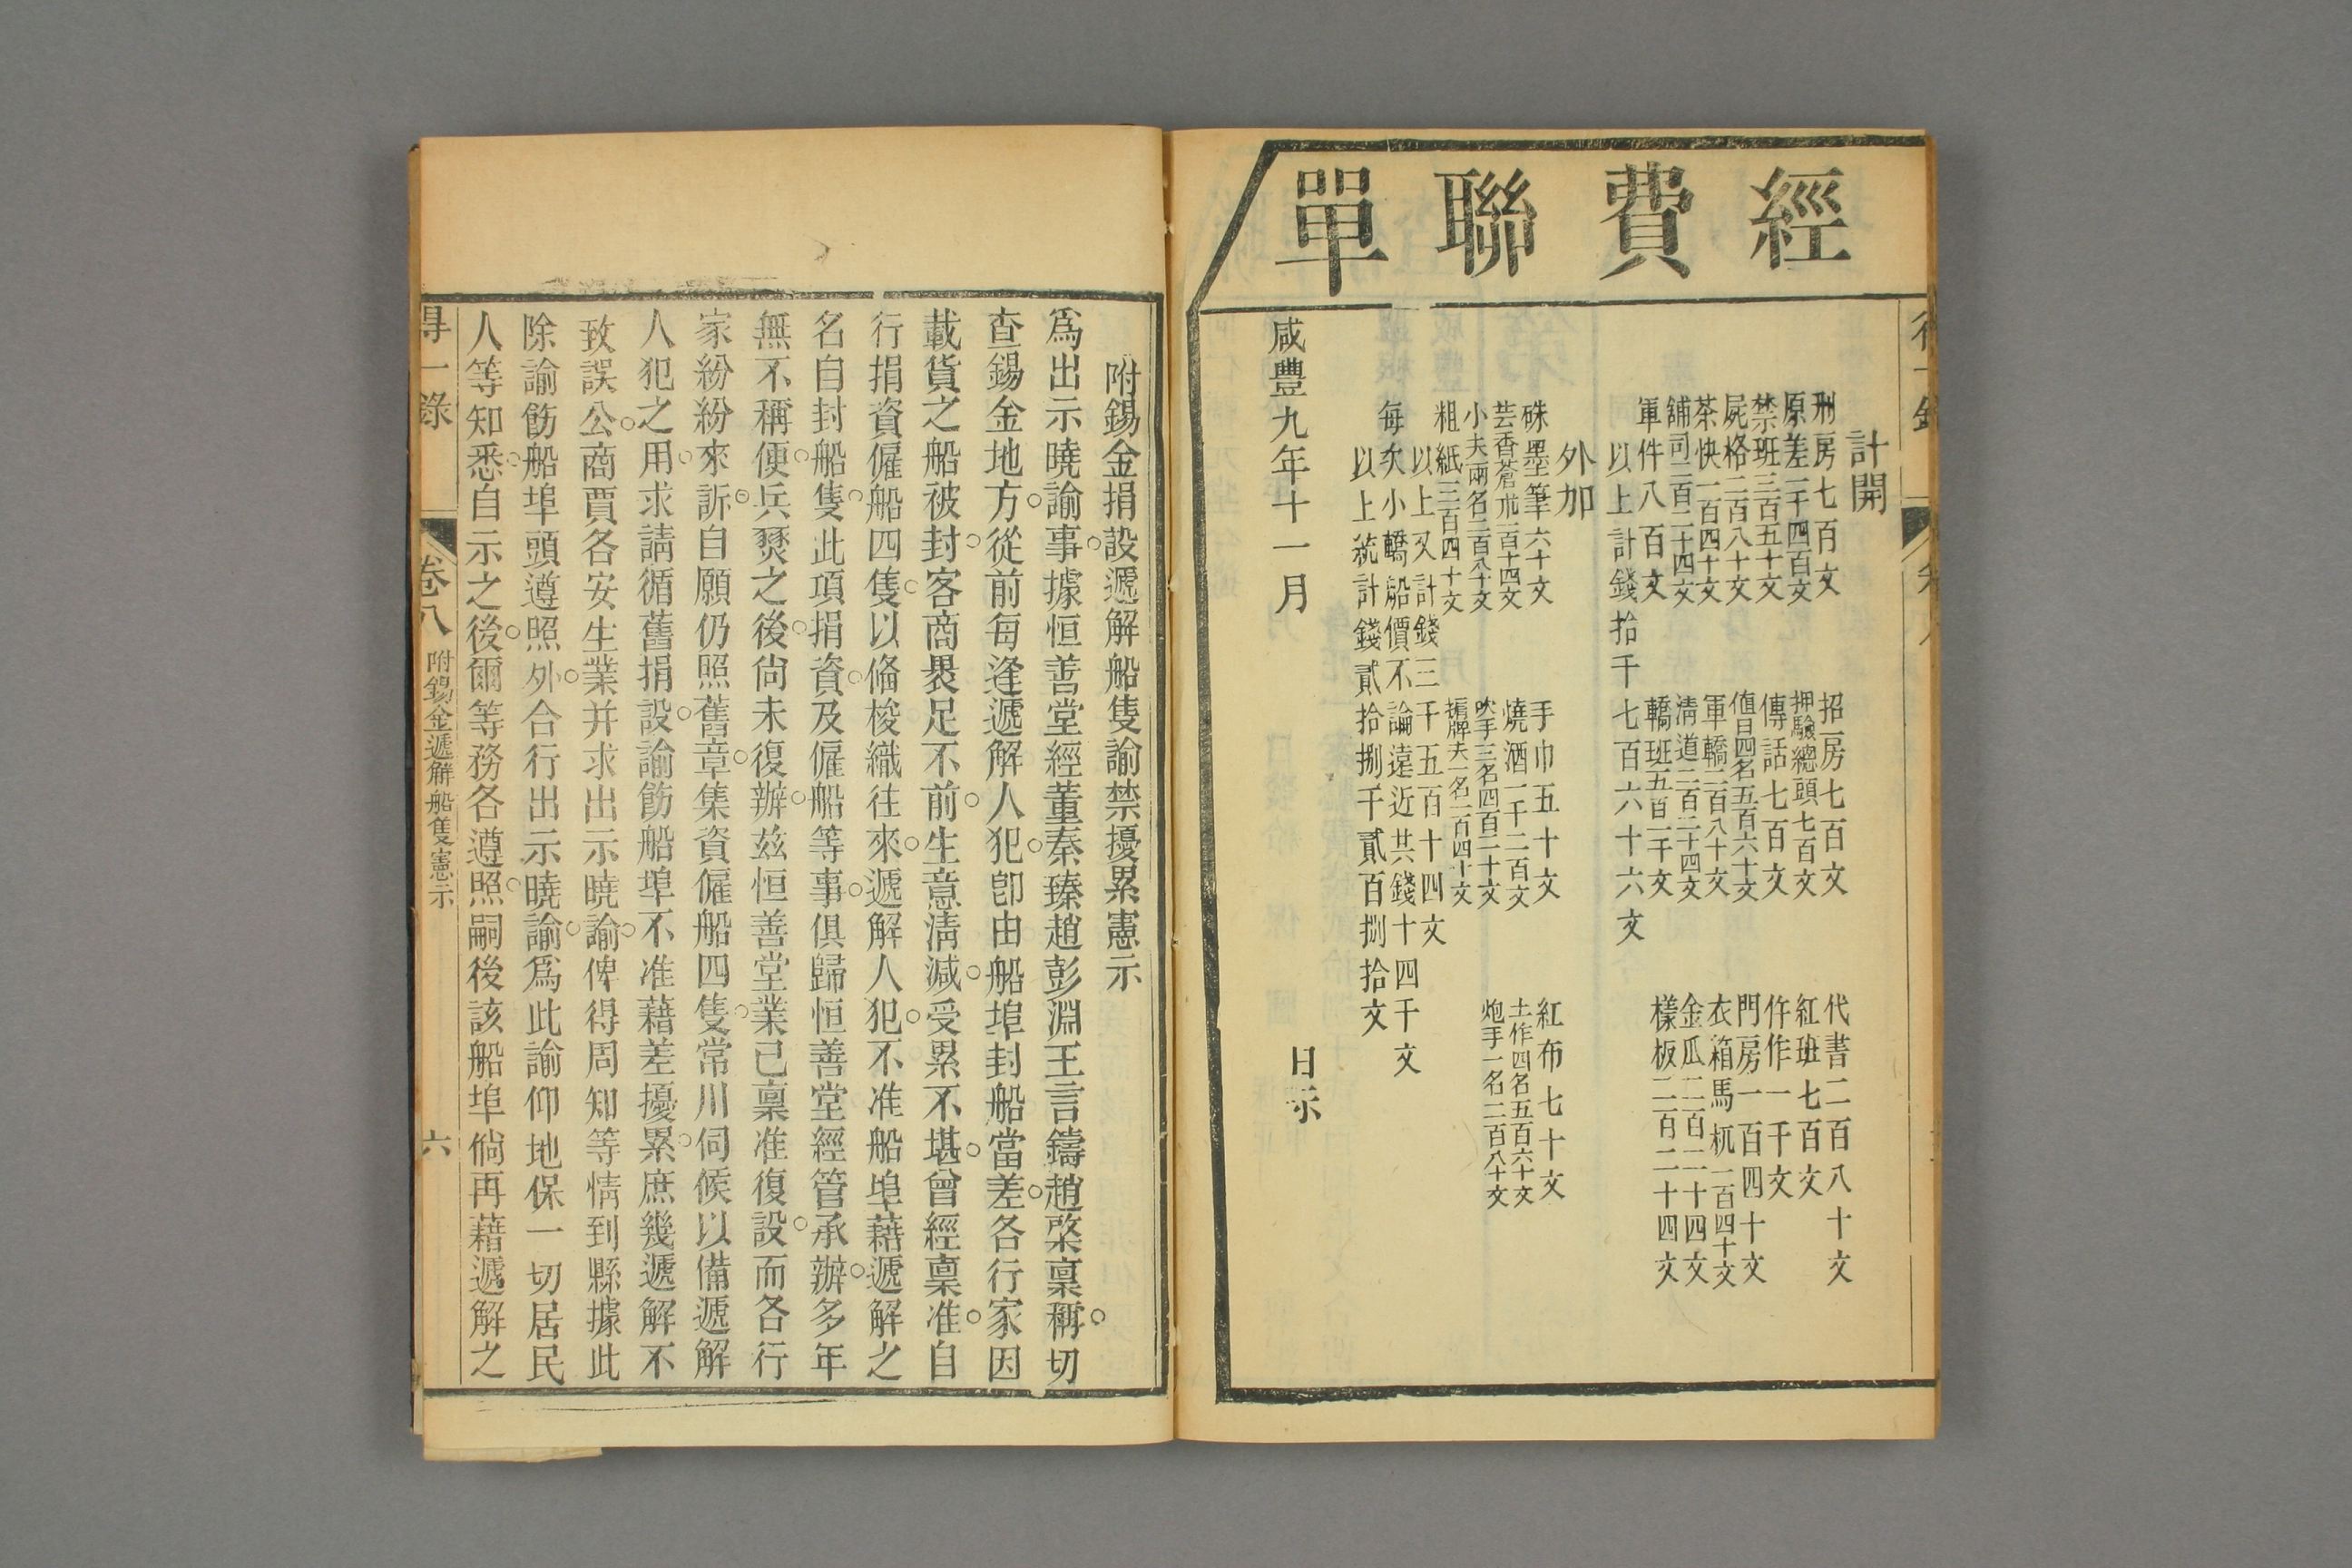 經費聯單
計開
刑房七百文 招房七百文 代書二百八十文
原差一千四百文 押驗總頭七百文 紅班七百文
禁班三百五十文 傳話七百文 仵作一千文
屍格二百八十文 值日四名五百六十文 門房一百四十文
茶快一百四十文 軍轎二百八十文 衣箱馬杌一百四十文
舖司二百二十四文 清道二百二十四文 金瓜二百二十四文
軍件八百文 轎班五百二十文 樣板二百二十四文
以上計錢拾千七百六十六文
外加
硃墨筆六十文 手巾五十文 紅布七十文
芸香蒼朮一百十四文 燒酒一千二百文 土作四名五百六十文
小夫兩名二百八十文 吹手三名四百二十文 炮手一名二百八十文
粗紙三百四十文 擡牌夫一名一百四十文
以上又計錢三千五百十四文
每次小轎船價不論遠近共錢十四千文
以上統計錢貳拾捌千貳百捌拾文
咸豐九年十一月 日示
附錫金捐設遞解船隻諭禁擾累憲示
爲出示曉諭事據恒善堂經董秦瑧趙彭淵王言鑄趙棨稟稱切
查錫金地方從前每逢遞解人犯卽由船埠封船當差各行家因
載貨之船被封客商畏足不前生意清減受累不堪曾經稟准自
行捐資僱船四隻以偹梭織往來遞解人犯不准船埠藉遞解之
名自封船隻此項捐資及僱船等事俱歸恒善堂經管承辦多年
無不稱便兵燹之後尙未復辦玆恒善堂業已稟准復設而各行
家紛紛來訴自願仍照舊章集資僱船四隻常川伺候以備遞解
人犯之用求請循舊捐設諭飭船埠不准藉差擾累庶幾遞解不
致誤公商賈各安生業并求出示曉諭俾得周知等情到縣據此
除諭飭船埠頭遵照外合行出示曉諭爲此諭仰地保一切居民
人等知悉自示之後爾等務各遵照嗣後該船埠倘再藉遞解之
得一錄 卷八 附錫金遞解船隻憲示 六